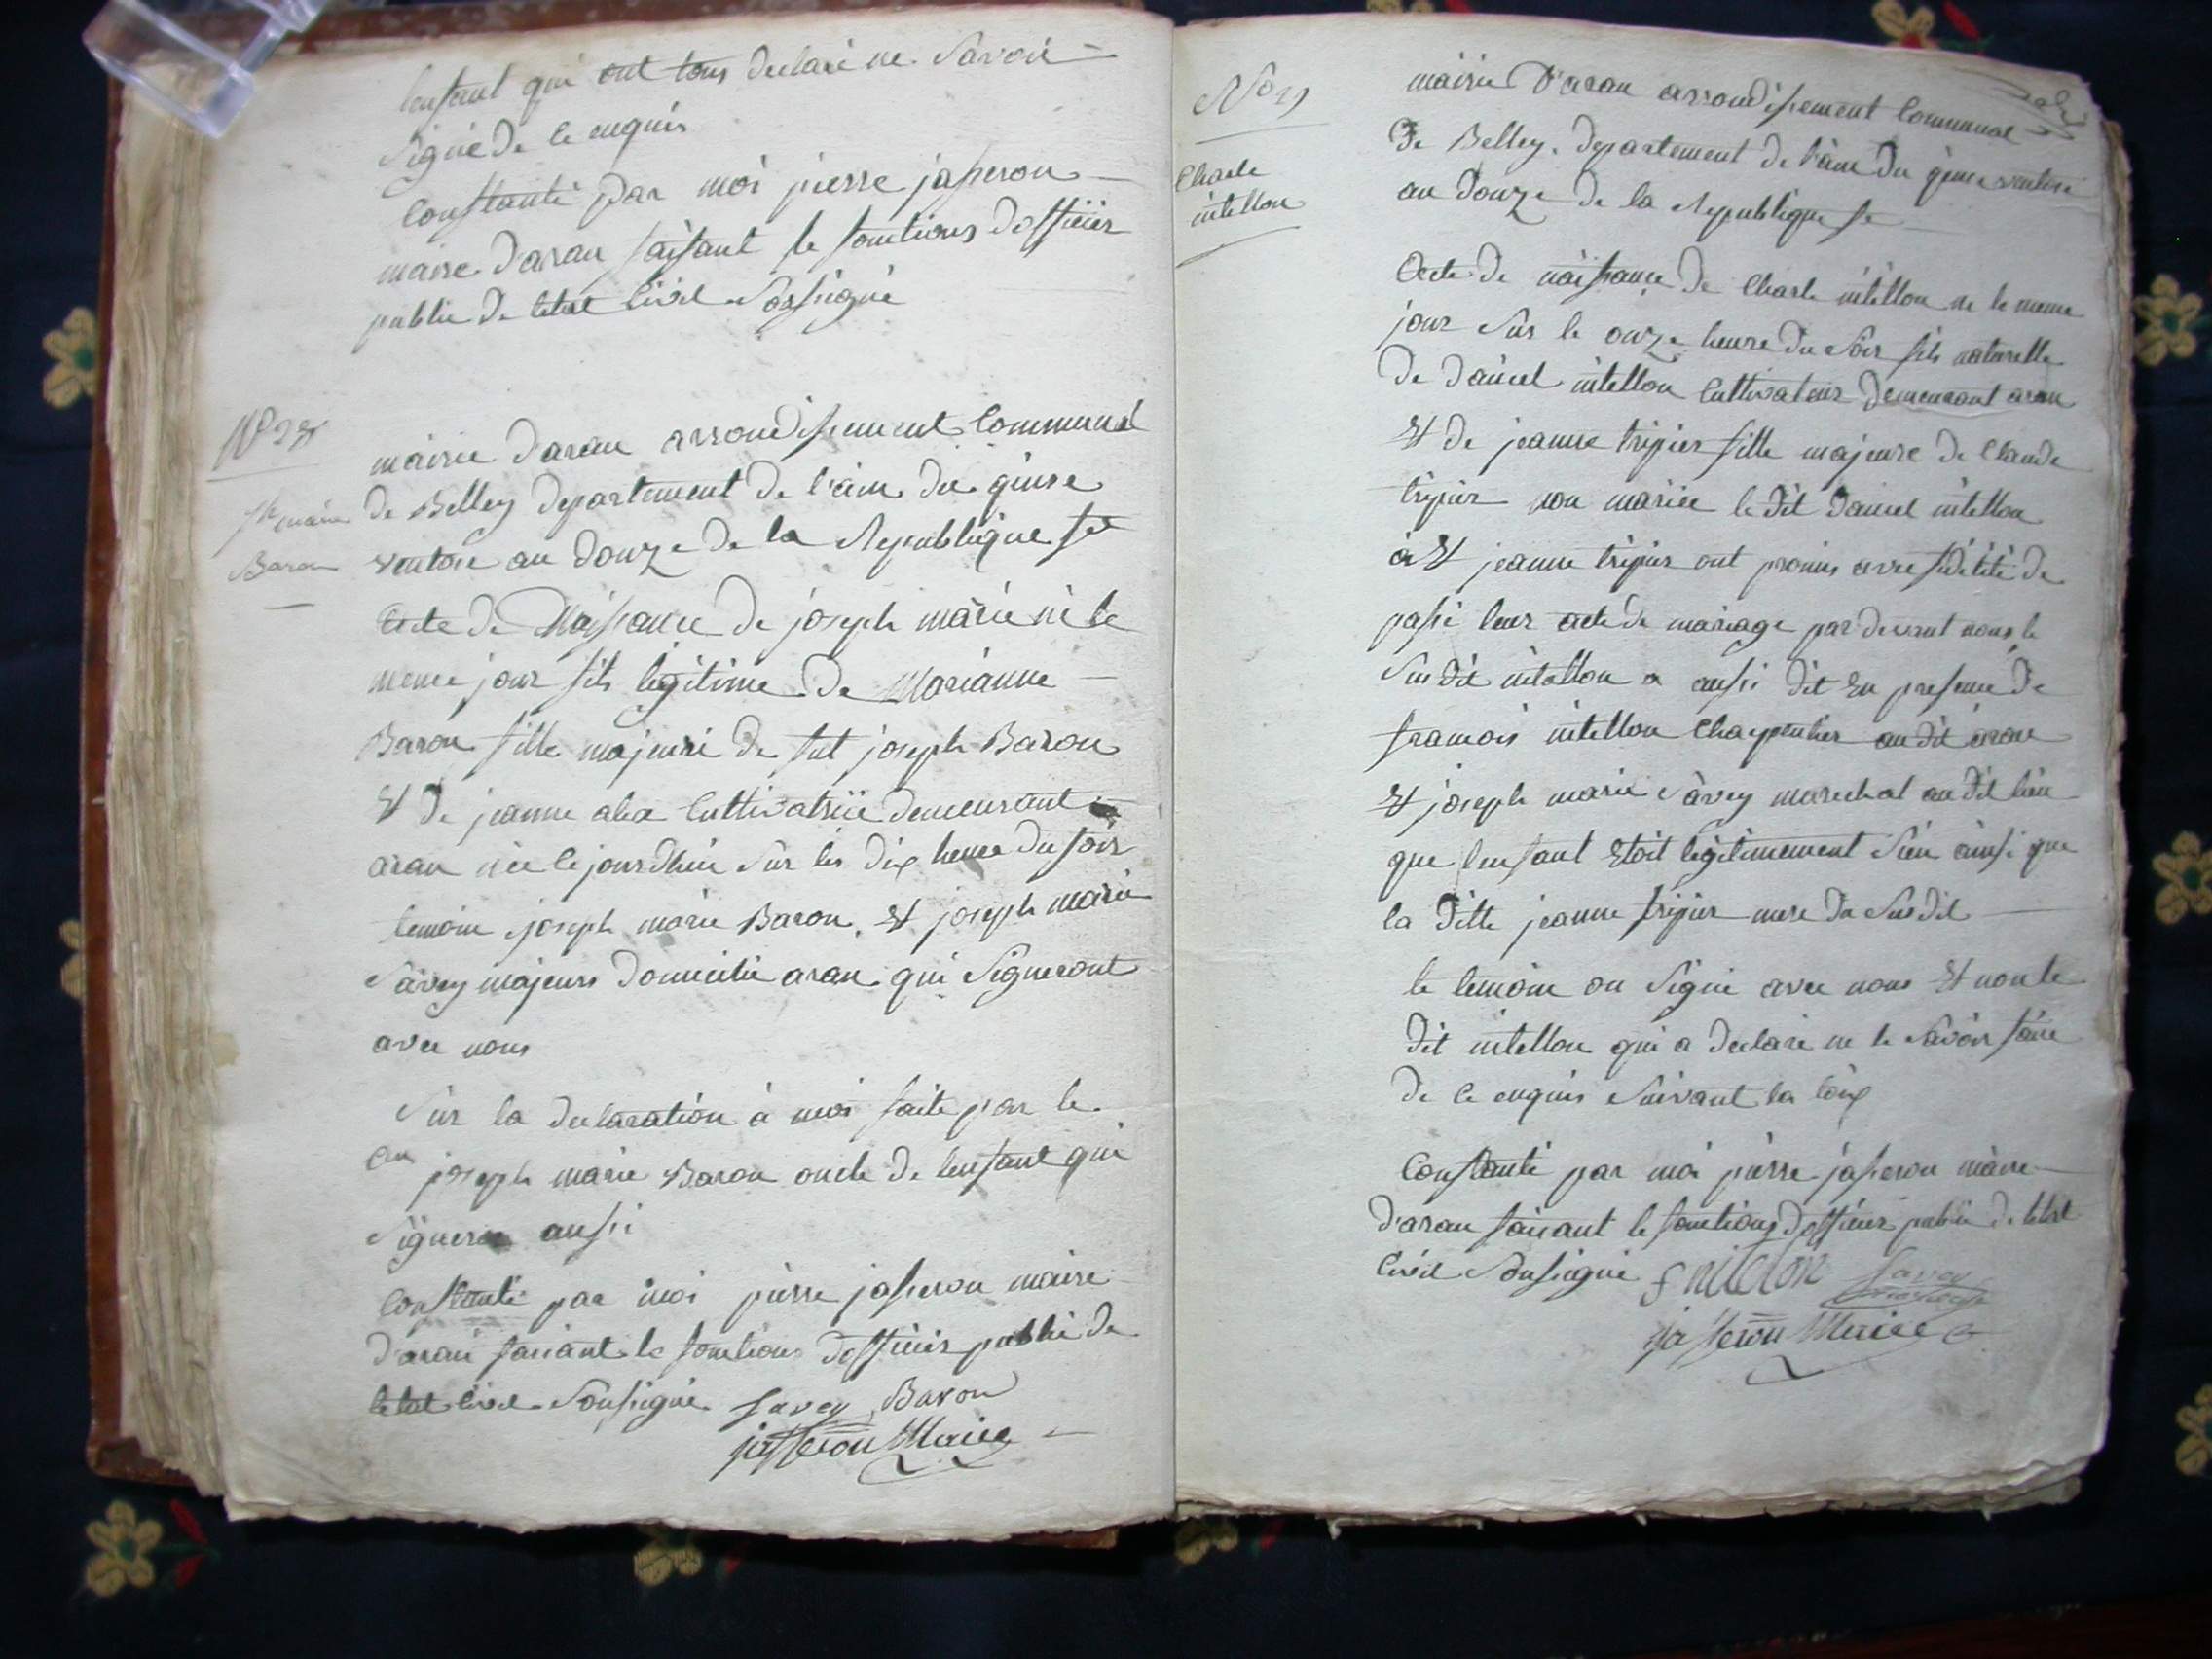 lenfant qui ont tous declaré ne Savoir
Signé de ce enquis
Constanté par moi pierre jasseron
maire d'aran faisant le fonctions dofficier
public de letat Civil Sossigné
N° 28
mairie d'aran arrondissement Communal
de Belley departement de l'ain du quinse
ventose an douze de la Republique fse
jh marie
Baron
Acte de Naissance de joseph marie né le
meme jour fils legitime de Marianne
Baron fille majeure de fut joseph Baron
Et de jeanne alex Cultivatrice demeurant
aran née cejourdhui Sur les dix heure du soir
temoin joseph marie Baron Et joseph marie
Savey majeurs domicilié aran qui Signeront
avec nous
Sur la declaration à moi faite par le
joseph marie Baron oncle de lenfant qui
Signera aussi
Constanté par moi pierre jasseron maire
d'aran faisant le fonctions dofficier public de
letat Civil Sousigné Savey Baron
jasseron Maire
N° 29
Charle
intellon
mairie d'aran arrondissement Communal
de Belley departement de l'ain du quinse ventose
an douze de la Republique fse
Acte de naissance de Charle intellon né le meme
jour Sur le onze heure du Soir fils naturelle
de daniel intellon Cultivateur demeurant aran
Et de jeanne tripier fille majeure de Claude
tripier non mariée le dit daniel intellon
à Et jeanne tripier ont promis avec fidélité de
passé leur acte de mariage par devant nous le
Sus dit intellon a aussi dit En presence de
francois intellon Charpentier au dit aran
Et joseph marie Savey marechal au dit lieu
que lenfant Etoit legitimement Sien ainsi que
la ditte jeanne tripier mere du Sus dit
le temoin on Signé avec nous Et non le
dit intellon qui a declaré ne le Savoir faire
de ce enquis Suivant la loix
Constanté par moi pierre jasseron maire
d'aran faisant le fonctions dofficier public de letat
Civil Sousigné f nitelon Savey
jasseron Maire